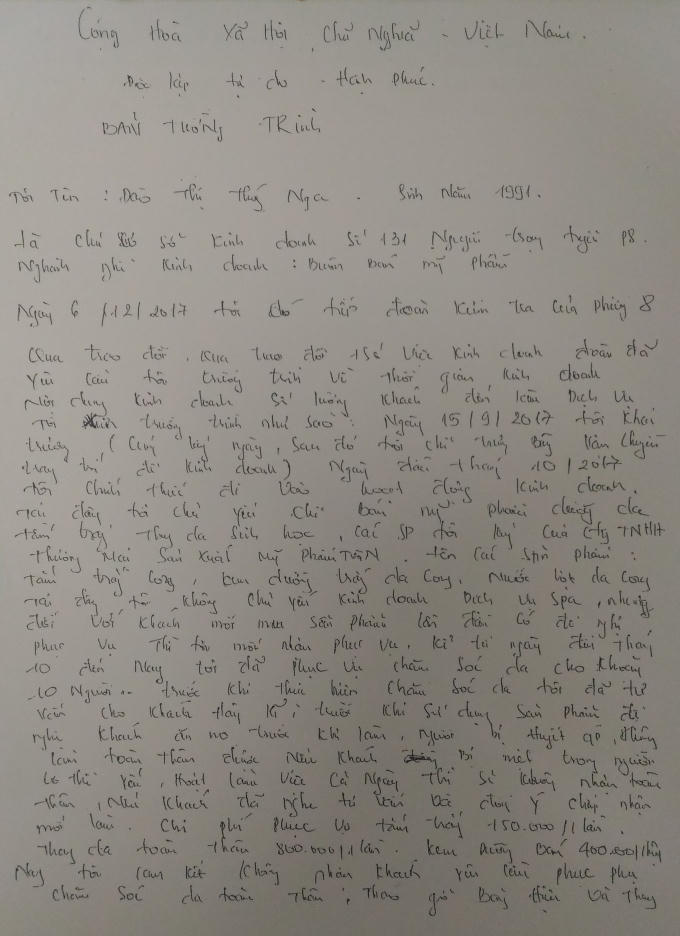 Cộng Hoà Xã Hội Chủ Nghĩa - Việt Nam.
Độc lập tự do - Hạnh phúc.
BẢN TƯỜNG TRÌNH
Tôi Tên : Đào Thị Thuý Nga . Sinh Năm 1991.
Là Chủ cơ sở Kinh doanh Số 131 Nguyễn trọng tuyển P8.
Nghành nghề Kinh doanh : Buôn Bán mỹ phẩm
Ngày 6 /12/2017 tôi có tiếp đoàn Kiểm tra của phường 8
Qua trao đổi . Qua trao đổi 1 số Việc Kinh doanh đoàn đã
yêu cầu tôi trường trình về thời gian Kinh doanh
Nội dung Kinh doanh Số lượng Khách đến làm Dịch Vụ
Tôi trường trình như sao : Ngày 15/9/2017 tôi Khai
trương ( Cúng lấy ngày , Sau đó tôi chỉ Vận Chuyển
trang trí để Kinh doanh ) Ngày đầu tháng 10/2017
tôi Chính Thức đi Vào hoạt động Kinh doanh.
Tại đây tôi Chủ yếu Chỉ Bán mỹ phẩm dưỡng da
tắm trắng Thay da Sinh học , Các SP tôi lấy Của Cty TNHH
Thương Mại Sản Xuất Mỹ Phẩm . tên Các Sản phẩm :
Tắm trắng Cozy , Kem dưỡng trắng da Cozy , Nước lột da Cozy
Tại đây tôi Không Chủ yếu Kinh doanh Dịch Vụ Spa , nhưng
đối Với Khách mới mua Sản phẩm lần đầu Có đề nghị
phục Vụ Thì tôi mới nhận phục Vụ . Kể từ ngày đầu tháng
10 đến Nay tôi đã phục Vụ chăm Sóc da cho Khoảng
10 Người .. trước Khi thực hiện Chăm Sóc da tôi đã tư
Vấn cho Khách Kĩ , trước Khi Sử dụng Sản Phẩm đề
nghị Khách ăn no trước Khi làm , Người bị Huyết áp , Không
làm toàn thân được Nếu Khách Bị mệt trong người
thì yếu , Hoặc làm Việc Cả Ngày Thì Sẽ Không nhận toàn
thân , Nếu Khách đã nghe tư Vấn Và đồng Ý Chấp nhận
mới làm . Chi phí Phục Vụ tắm trắng 150.000/1 lần .
Thay da toàn Thân 800.000/1 lần . Kem dưỡng Bán 400.000/1hủ
Nay tôi Cam Kết Không nhận Khách yêu Cầu phục phụ
Chăm Sóc da toàn Thân , Tháo gỡ Bảng Hiệu Và Thay